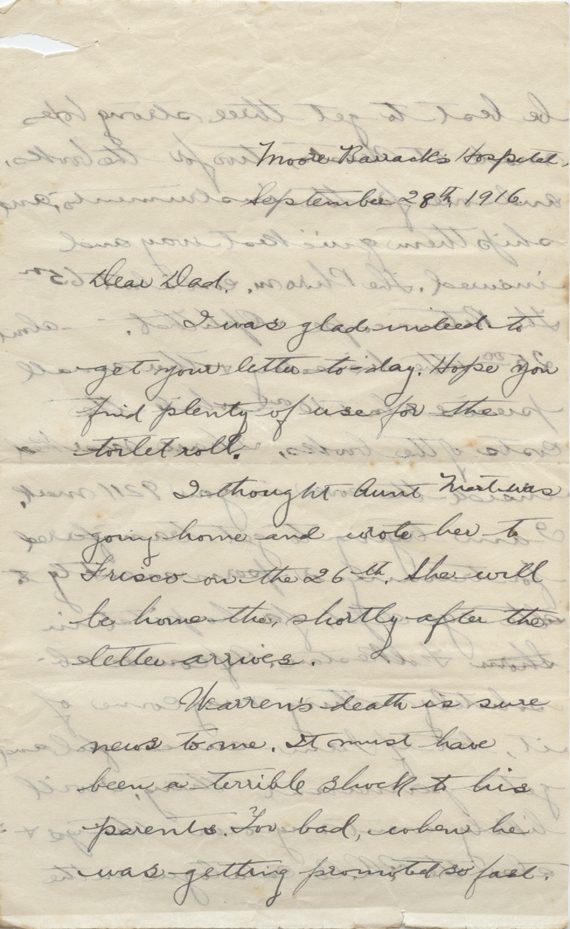 Moore Barracks Hospital,
September 28th, 1916.
Dear Dad.
I was glad indeed to
get your letter to-day. Hope you
find plenty of use for the
toilet roll.
I thought Aunt Mert was
going home and wrote her to
Frisco on the 26th. She will
be home tho, shortly after the
letter arrives.
Warren's death is sure
news to me. It must have
been a terrible shock to his
parents. Too bad, when he
was getting promoted so fast.